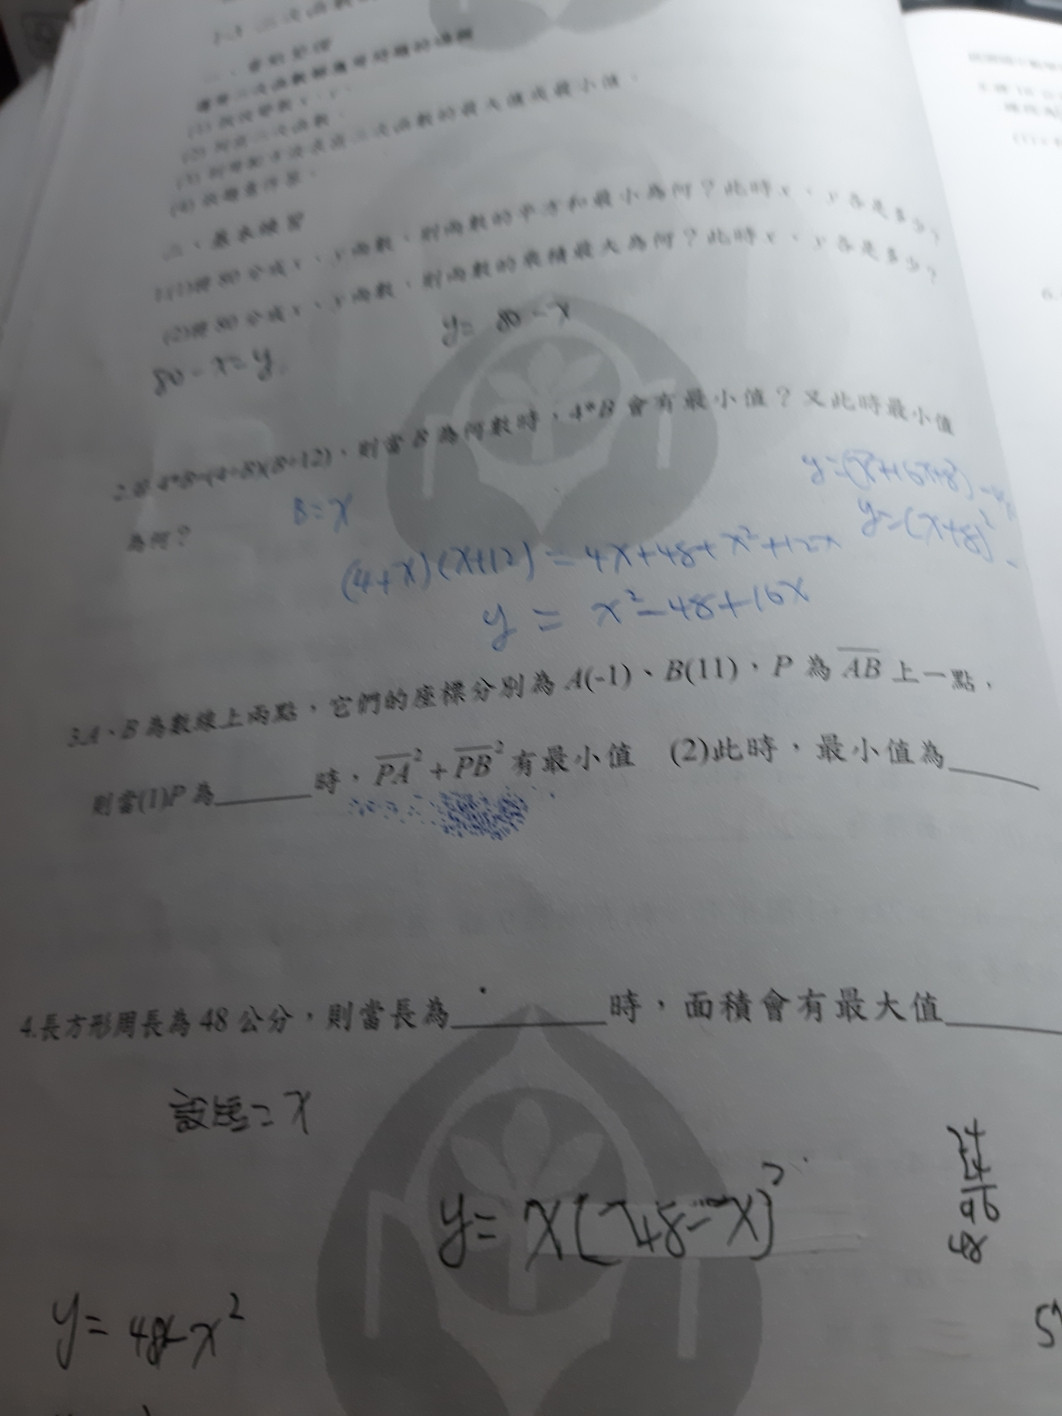 (2) 列出二次函數。
(3) 利用配方法求出二次函數的最大值或最小值。
(4) 依題意作答。
二、基本練習
1.(1)將 80 分成 x、y 兩數,則兩數的平方和最小為何?此時 x、y 各是多少?
(2)將 80 分成 x、y 兩數,則兩數的乘積最大為何?此時 x、y 各是多少?
y= 80-x
80-x=y
2.若 4*B=(4+B)(B+12),則當 B 為何數時,4*B 會有最小值?又此時最小值
為何?
B=x
y=(x²+16x+8²)
y=(x+8)²-
(4+x)(x+12)=4x+48+x²+12x
y = x²-48+16x
3.A、B 為數線上兩點,它們的座標分別為 A(-1)、B(11),P 為 AB 上一點,
則當(1)P 為______時,PA²+PB² 有最小值 (2)此時,最小值為______
4.長方形周長為 48 公分,則當長為______時,面積會有最大值______
=x
y=x(48-x)
24
96
48
y=48x-x²